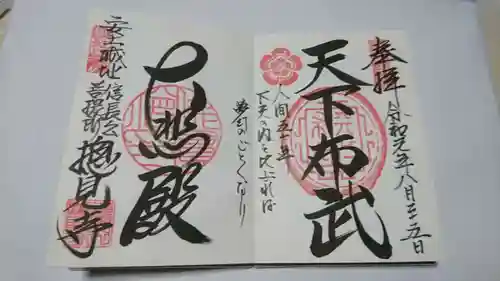 奉拝
天下布武
令和元年八月二十五日
人間五十年
下天の内を比ぶれば
夢幻のごとくなり
大悲殿
安土城址
信長公
菩提所
摠見寺